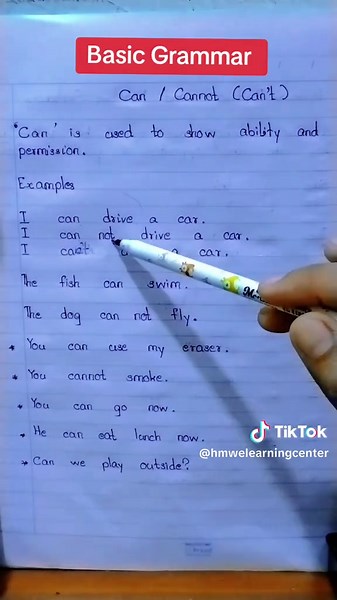 Basic Grammar
Can / Cannot (Can't)
'Can' is used to show ability and
permission.
Examples
I can drive a car.
I can not drive a car.
I can't a car.
The fish can swim.
The dog can not fly.
* You can use my eraser.
* You cannot smoke.
* You can go now.
* He can eat lunch now.
* Can we play outside?
TikTok
@hmwelearningcenter